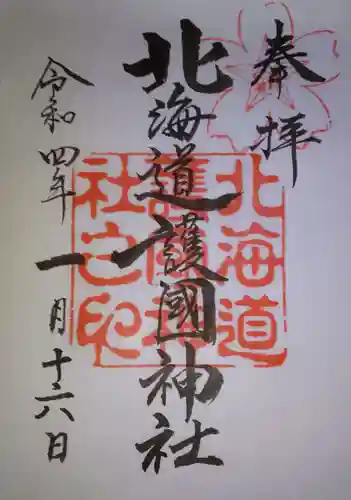 奉拝
北海道護國神社
令和四年一月十六日
北海道
護國神
社之印